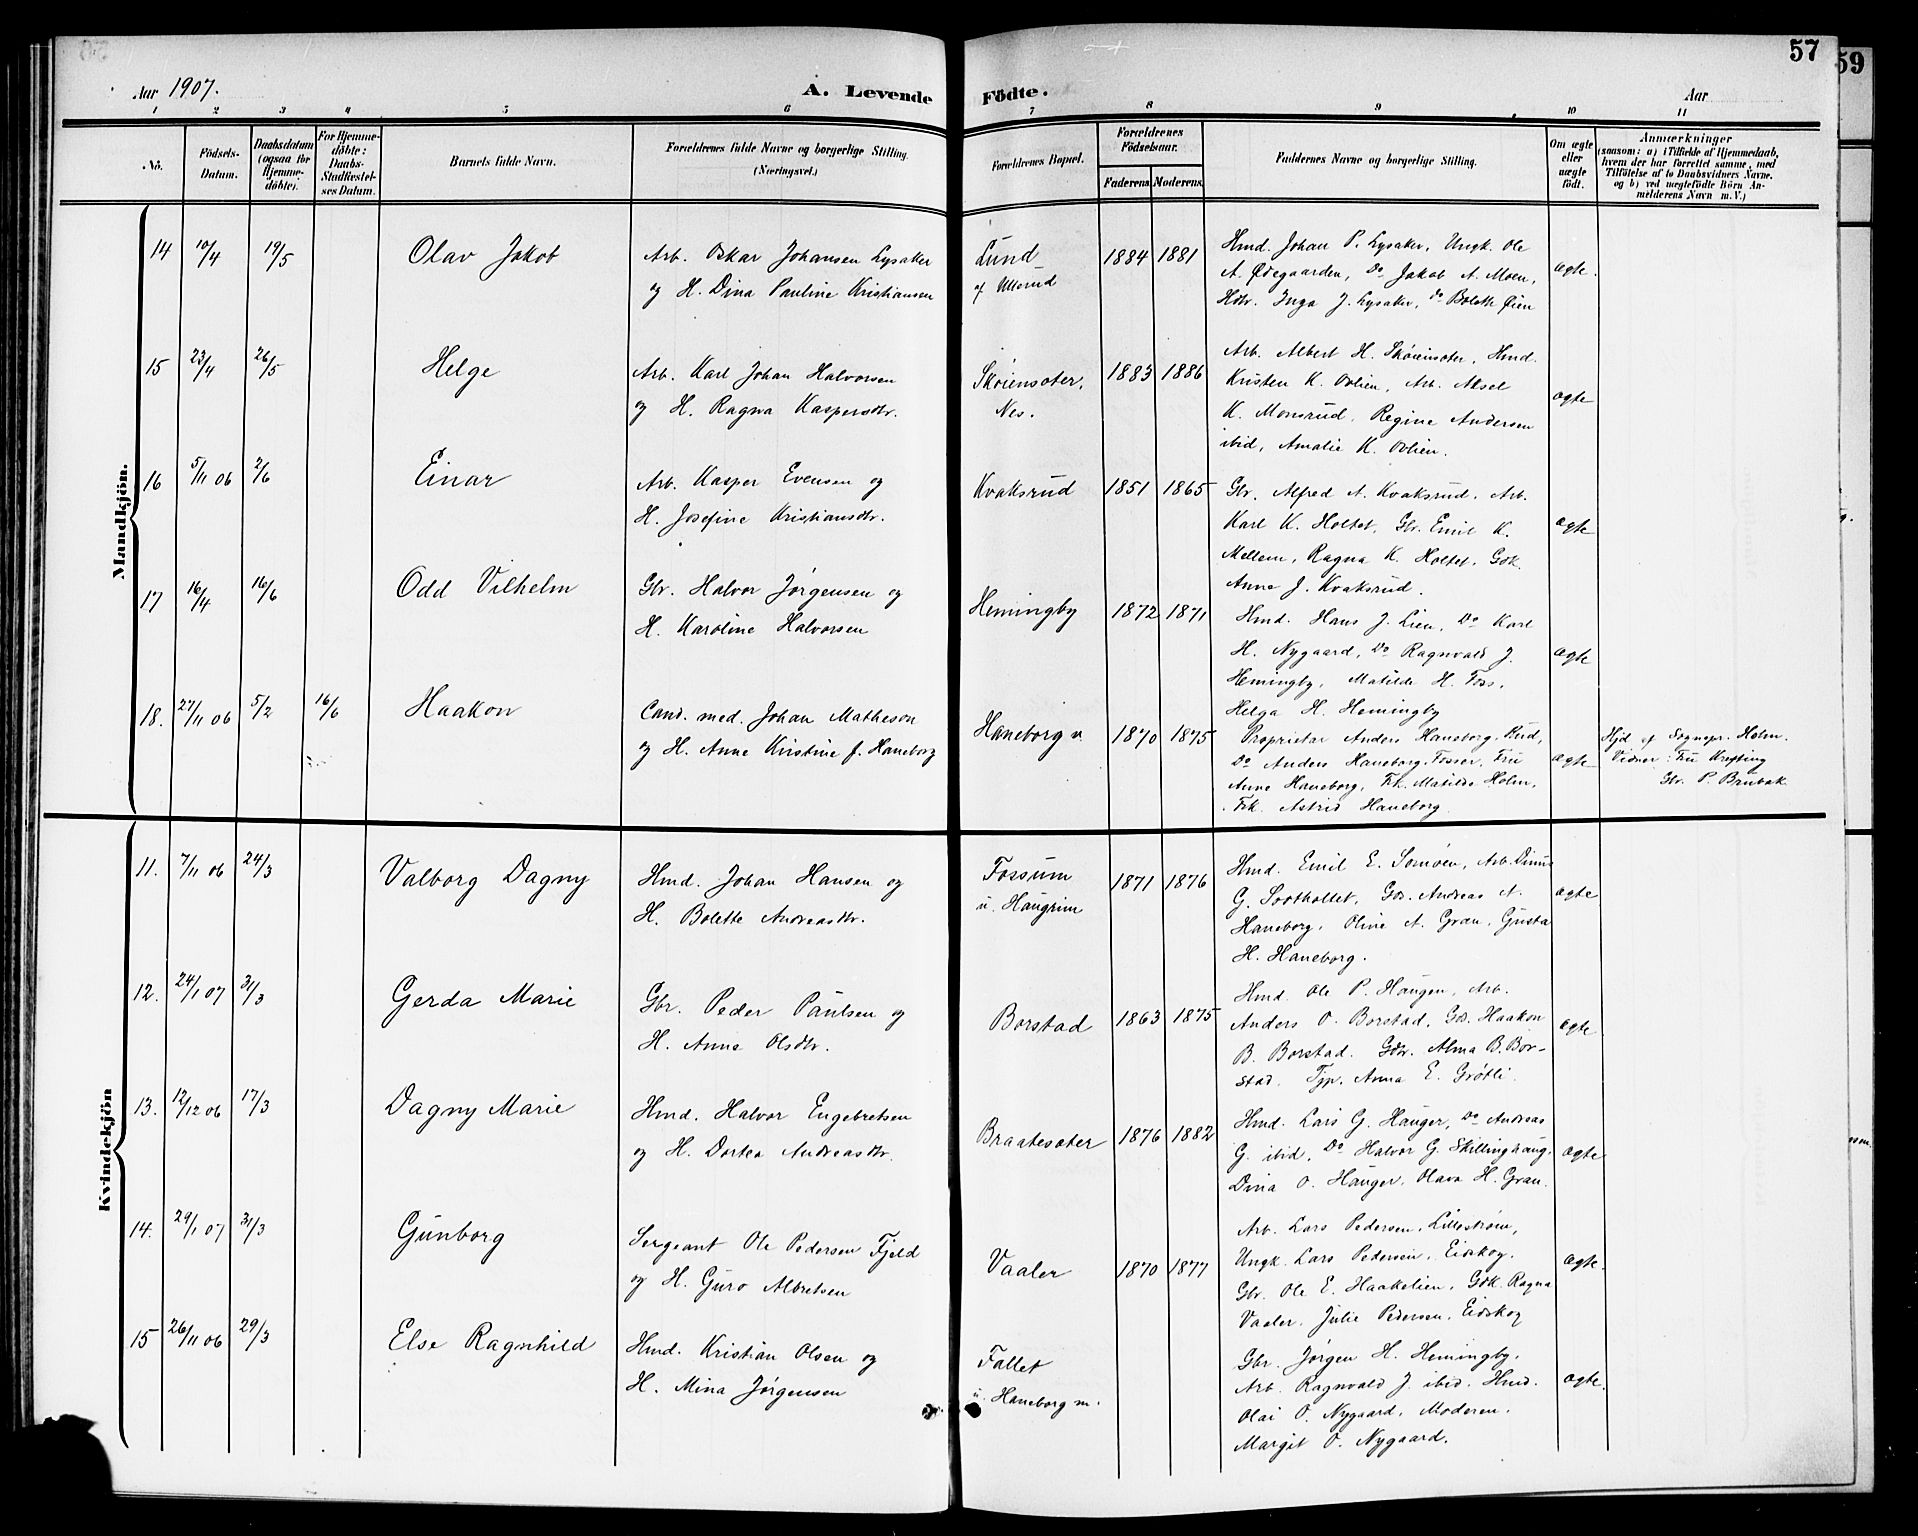 57
59
Aar 1907.
A. Levende Födte.
Aar
1 2 3 4 5 6 7 8 9 10 11
No.
Födsels-
Datum.
Daabsdatum
(ogsaa for
Hjemme-
döbte).
For Hjemme-
döbte:
Daabs-
Stadfæstel-
ses Datum.
Barnets fulde Navn.
Forældrenes fulde Navne og borgerlige Stilling.
(Næringsvei.)
Forældrenes Bopæl.
Forældrenes
Födselsaar.
Faderens. Moderens.
Faddernes Navne og borgerlige Stilling.
Om ægte
eller
uægte
födt.
Anmærkninger
(saasom: a) i Tilfælde af Hjemmedaab,
hvem der har forrettet samme, med
Tilföielse af to Daabsvidners Navne,
og b) ved uægtefödte Börn An-
melderens Navn m.V.)
Mandkjön.
14 10/4 19/5 Olav Jakob
Arb. Oskar Johansen Lysaker
og H. Dina Pauline Kristiansen
Lund
af Ullerud
1884 1881
Hmd. Johan P. Lysaker, Ungk. Ole
A. Ødegaarden, Do Jakob A. Moen,
Hdtr. Inga J. Lysaker, do Bolette Øien
ægte.
15 23/4 26/5 Helge
Arb. Karl Johan Halvorsen
og H. Ragna Kaspersdtr.
Skøiensæter,
Nes.
1883 1886
Arb. Albert H. Skøiensæter, Hmd.
Kristen K. Ovlien, Arb. Aksel
K. Monsrud, Regine Andersen
ibid, Amalie K. Ovlien.
ægte
16 5/11 06 2/6 Einar
Arb. Kasper Evensen og
H. Josefine Kristiansdtr.
Kvaksrud
1851 1865
Gbr. Alfred A. Kvaksrud, Arb.
Karl K. Holtet, Gbr. Emil K.
Mellem, Ragna K. Holtet, Gdk.
Anna J. Kvaksrud.
ægte
17 16/4 16/6 Odd Vilhelm
Gbr. Halvor Jørgensen og
H. Karoline Halvorsen
Hemingby
1872 1871
Hmd. Hans J. Lien, Do Karl
H. Nygaard, Do Ragnvald J.
Hemingby, Matilde H. Foss,
Helga H. Hemingby
ægte
18. 27/11 06 5/2 16/6 Haakon
Cand. med. Johan Matheson
og H. Anne Kristine f. Haneborg
Haneborg n.
1870 1875
Proprietær Anders Haneborg Rud,
Do Anders Haneborg-Fosser, Fru
Anne Haneborg, Frk. Matilde Holm,
Frk. Astrid Haneborg
ægte
Hjd af Sognepr. Holm.
Vidner: Fru Krefting
Gbr. P. Brubak
Kvindekjön
11. 7/11 06 24/3 Valborg Dagny
Hmd. Johan Hansen og
H. Bolette Andreasdtr.
Fossum
u. Haugrim
1871 1876
Hmd. Emil E. Somoen, Arb.
G. Sootholtet, Gds. Andreas A.
Haneborg, Oline A. Gran, Gusta
H. Haneborg.
ægte
12. 24/1 07 31/3 Gerda Marie
Gbr. Peder Paulsen og
H. Anna Olsdtr.
Borstad
1863 1875
Hmd. Ole P. Haugen, Arb.
Anders O. Borstad, Gds. Haakon
B. Borstad. Gdtr. Alma B. Bor-
stad, Tjp. Anna E. Grøtli.
ægte
13. 12/12 06 17/3 Dagny Marie
Hmd. Halvor Engebretsen
og H. Dortea Andreasdtr.
Braatesæter
1876 1882
Hmd. Lars G. Hauger, Do Andreas
G. ibid, Do Halvor G. Skillinghaug,
Dina O. Hauger, Olava H. Gran.
ægte
14. 29/1 07 31/3 Gunborg
Sergeant Ole Pedersen Fjeld
og H. Guro Albretsen
Vaaler
1870 1877
Arb. Lars Pedersen, Lillestrøm,
Ungk. Lars Pedersen, Eidskog.
Gbr. Ole E. Haakelien, Gdk. Ragna
Vaaler, Julie Pedersen, Eidskog
ægte.
15 26/11 06 29/3 Else Ragnhild
Hmd. Kristian Olsen og
H. Mina Jørgensen
Fallet
u. Haneborg m.
Gbr. Jørgen H. Hemingby,
Arb. Ragnvald J. ibid. Hmd.
Olai O. Nygaard, Moderen.
Margit O. Nygaard.
ægte.